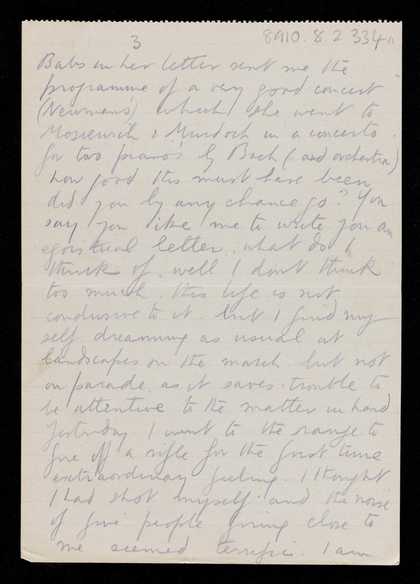 3
8910.8.2 334
Babs in her letter sent me the
programme of a very good concert
(Newman's) which she went to
Moseiwich & Murdoch in a concerto
for two piano's by Bach (and orchestra)
how good this must have been
did you by any chance go? You
say you like me to write you an
egoistical letter. what do I
think of. well I dont think
too much. this life is not
conducive to it. but I find my
self dreaming as usual at
landscapes on the march but not
on parade. as it saves trouble to
be attentive to the matter in hand
Yesterday I went to the range to
fire off a rifle for the first time
extraordinary feeling. I thought
I had shot myself and the noise
of five people firing close to
me seemed terrific. I am